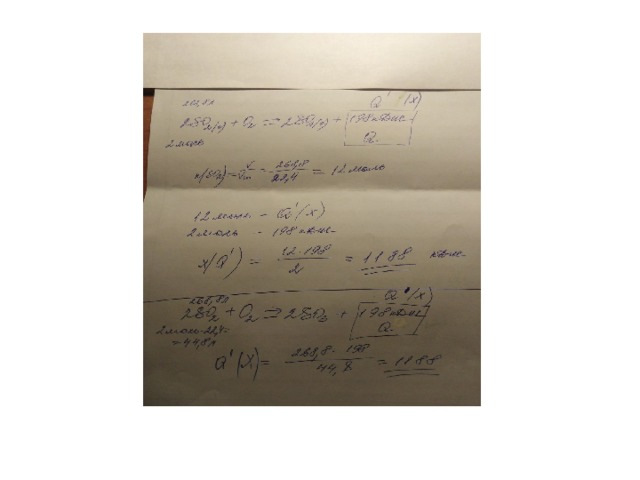 Q' (x)
2SO₂(г) + O₂ ⇄ 2SO₃(г) + 198 кДж
Q
2 моль
n(SO₂) = V/Vm = 268,8/22,4 = 12 моль
12 моль - Q'(x)
2 моль - 198 кДж
x(Q') = 12·198/2 = 1188 кДж
268,8л Q'(x)
2SO₂ + O₂ ⇄ 2SO₃ + 198 кДж
Q
2 моль·22,4=
=44,8л
Q'(X)= 268,8· 198/44,8 = 1188